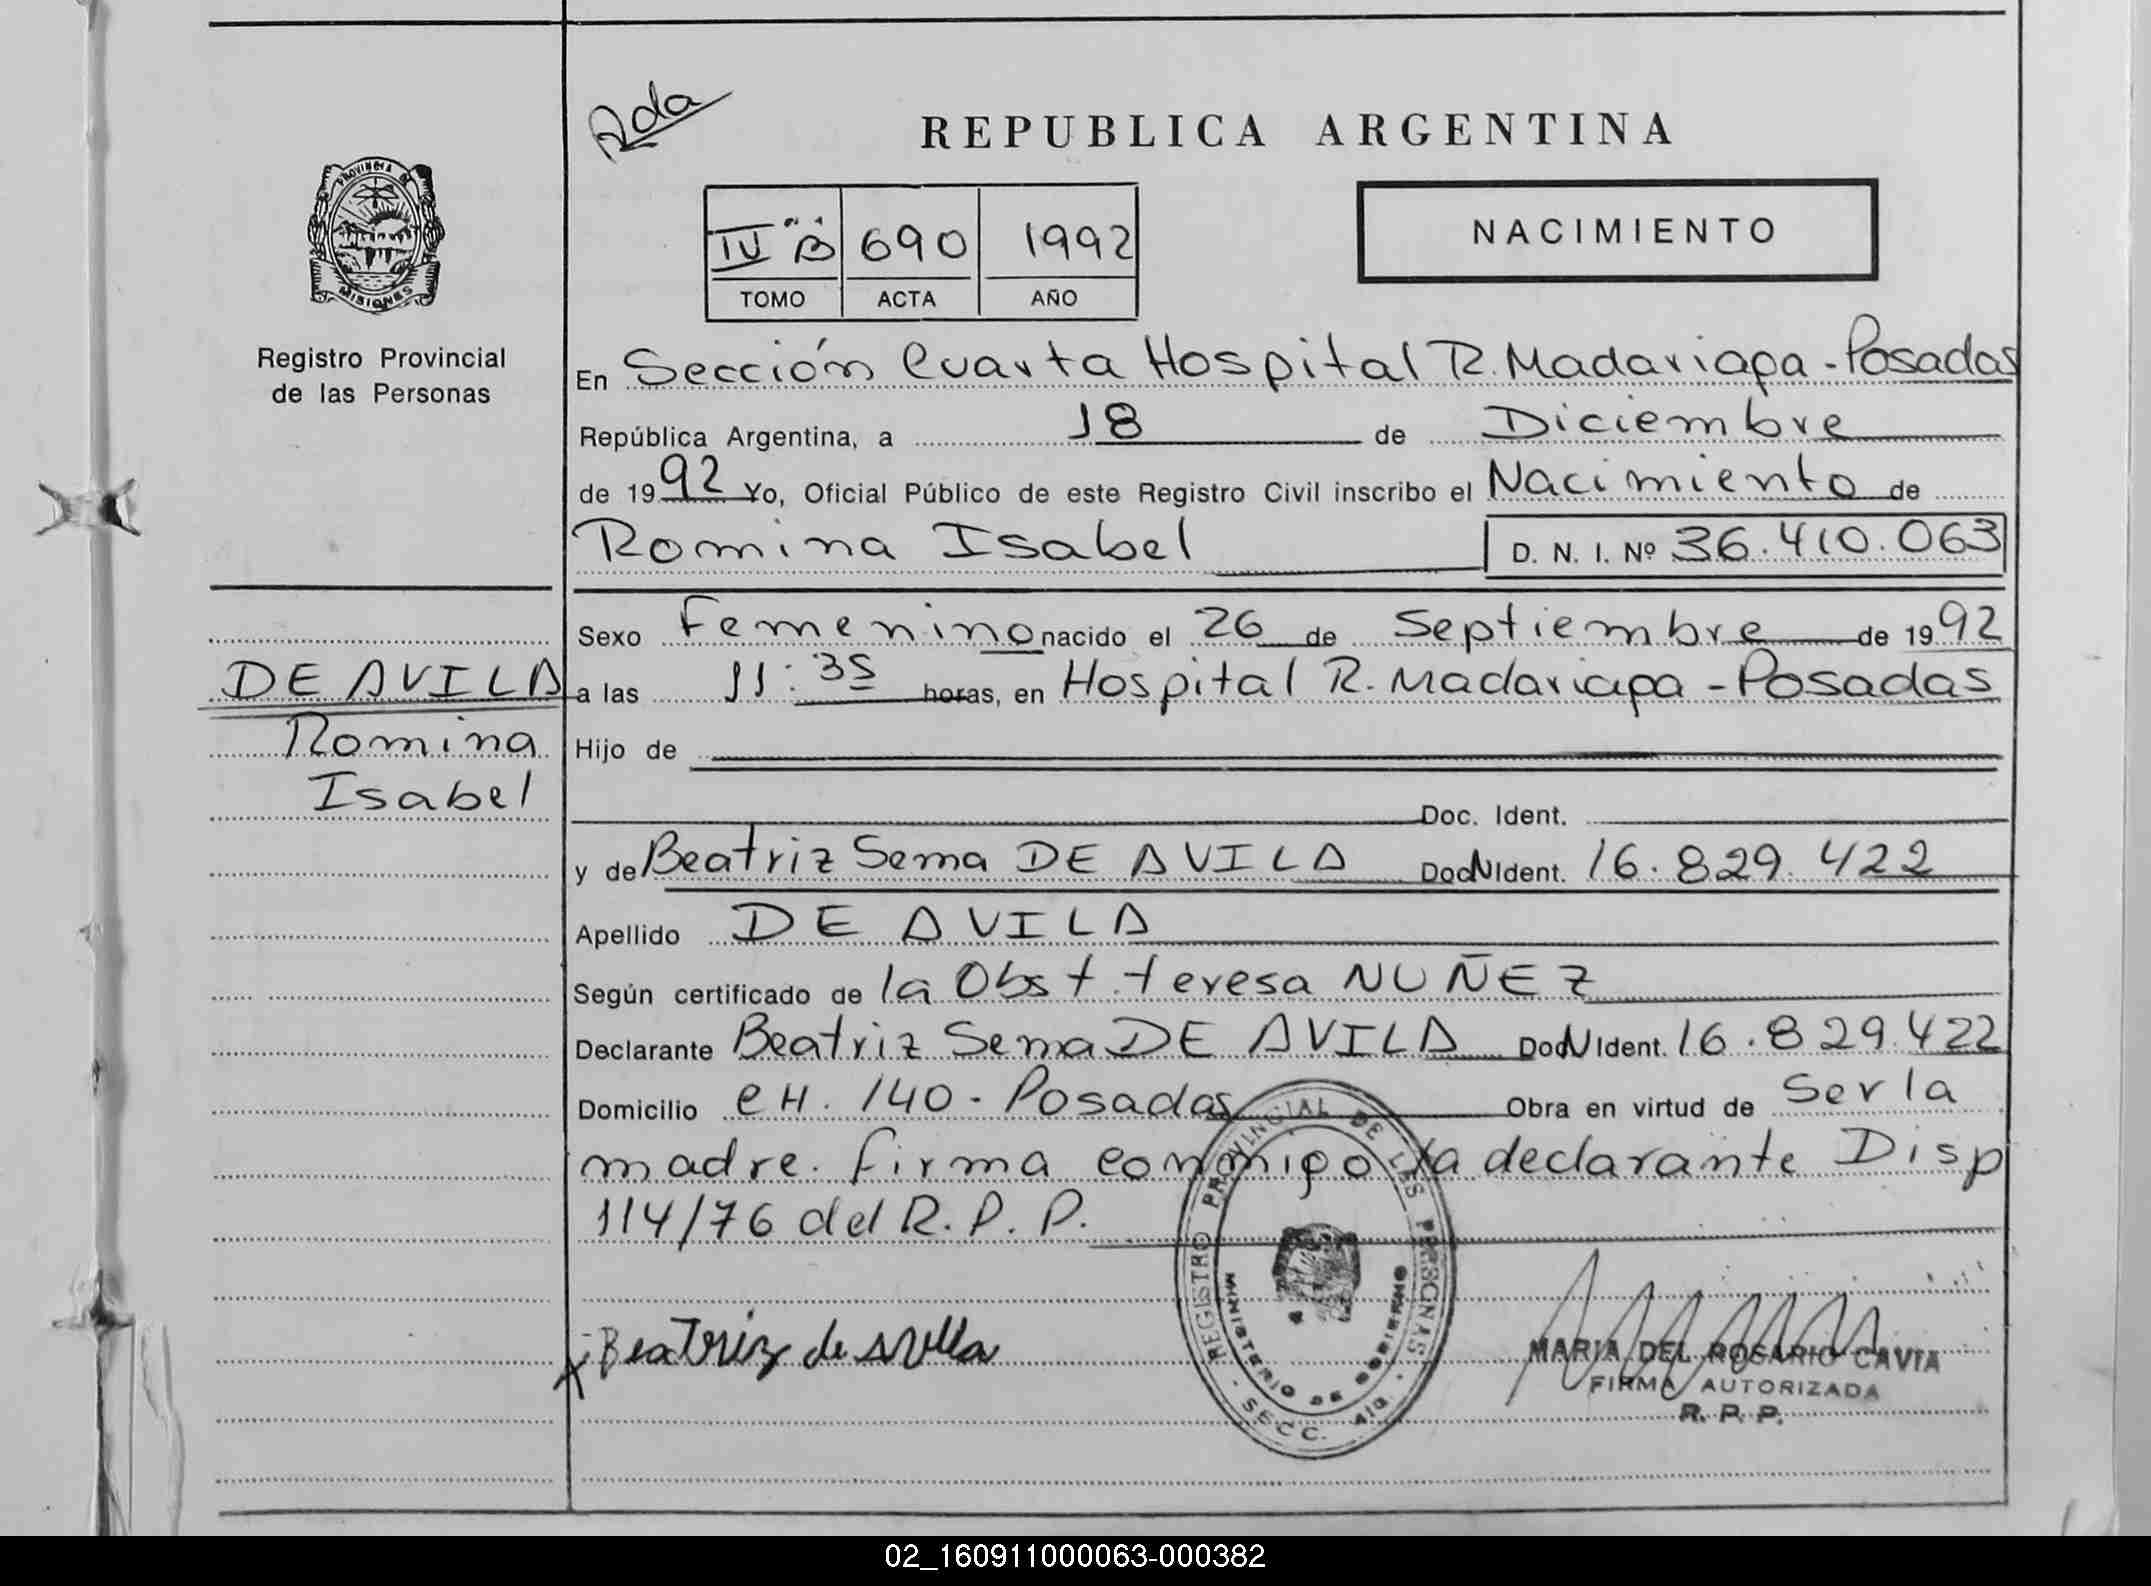 Rda
REPUBLICA ARGENTINA
PROVINCIA DE
MISIONES
IV "B" 690 1992
TOMO ACTA AÑO
NACIMIENTO
Registro Provincial
de las Personas
En Sección Cuarta Hospital R. Madariaga - Posadas
República Argentina, a 18 de Diciembre
de 1992 Yo, Oficial Público de este Registro Civil inscribo el Nacimiento de
Romina Isabel D. N. I. Nº 36.410.063
DE AVILA
Romina
Isabel
Sexo Femenino nacido el 26 de Septiembre de 1992
a las 11:35 horas, en Hospital R. Madariaga - Posadas
Hijo de
Doc. Ident.
y de Beatriz Sema DE AVILA Doc N Ident. 16.829.422
Apellido DE AVILA
Según certificado de la Obst. teresa NUÑEZ
Declarante Beatriz Sema DE AVILA Doc N Ident. 16.829.422
Domicilio CH. 140 - Posadas Obra en virtud de Ser la
madre. firma conmigo la declarante Disp
114/76 del R. P. P.
REGISTRO PROVINCIAL DE LAS PERSONAS
MINISTERIO DE GOBIERNO
SECC. 4ta.
Beatriz de Avilla
MARIA DEL ROSARIO CAVIA
FIRMA AUTORIZADA
R. P. P.
02_160911000063-000382